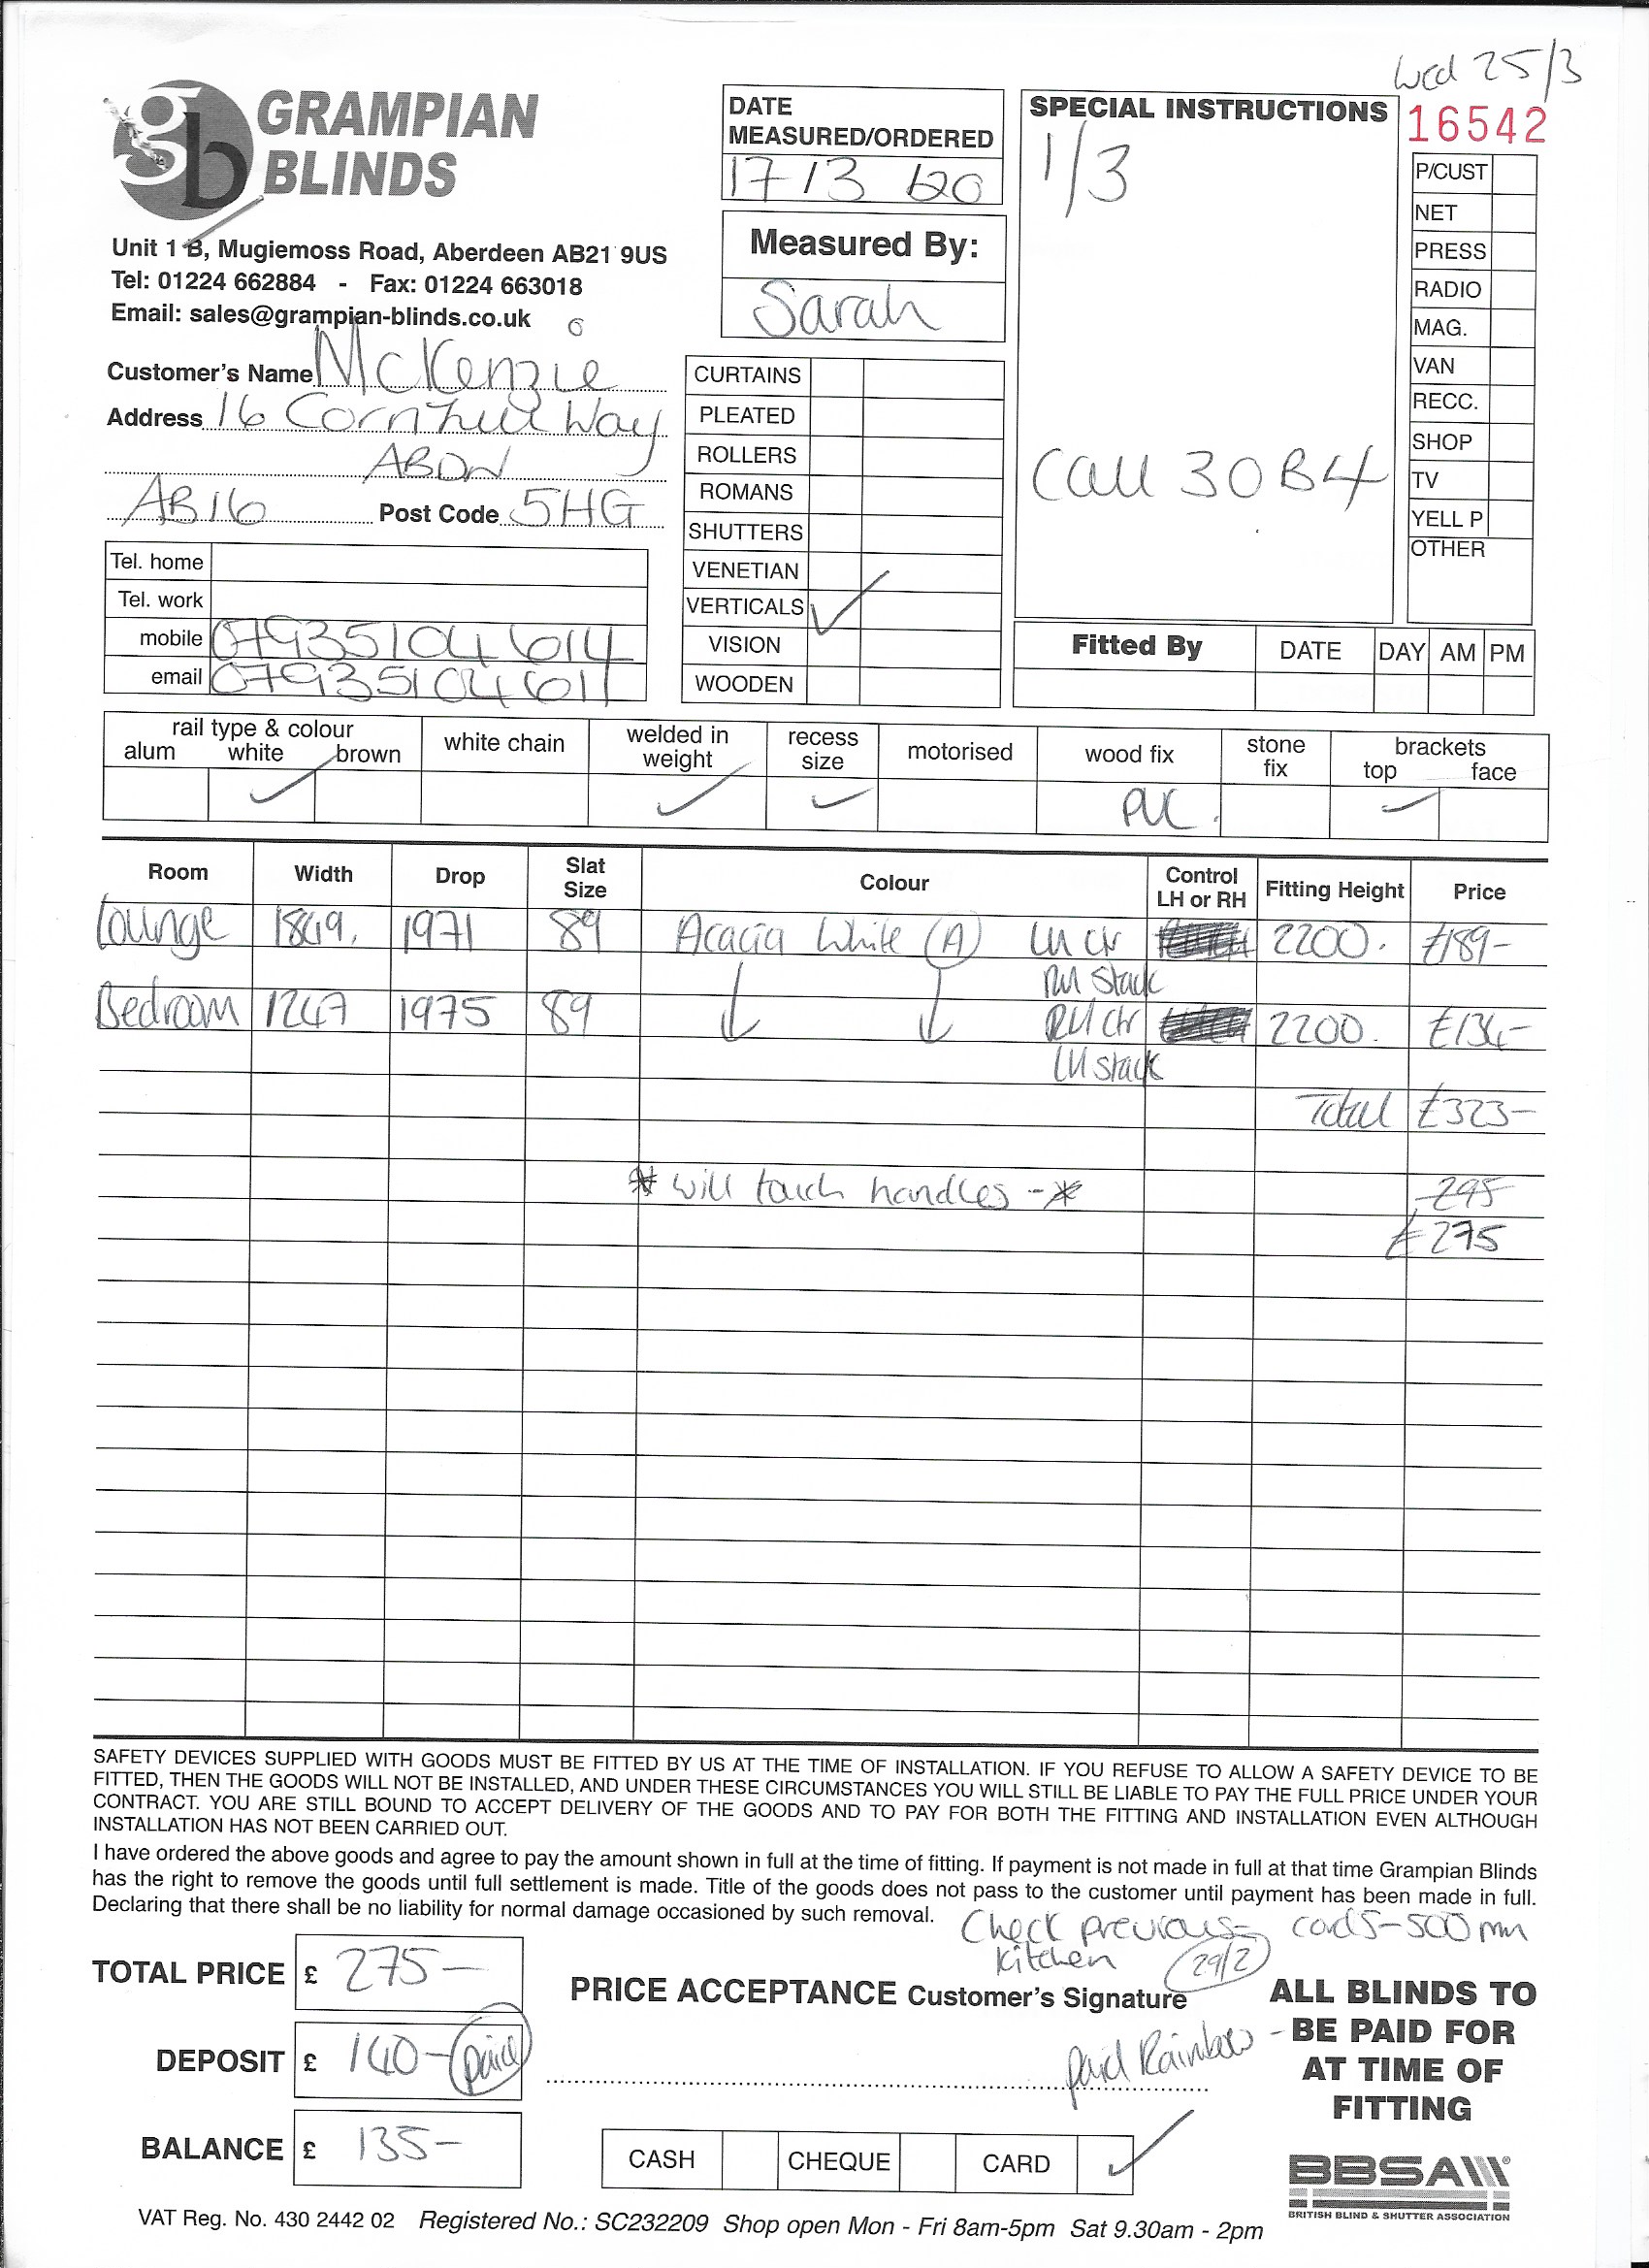 Wed 25/3
GRAMPIAN
BLINDS
gb
Unit 1 B, Mugiemoss Road, Aberdeen AB21 9US
Tel: 01224 662884 - Fax: 01224 663018
Email: sales@grampian-blinds.co.uk
Customer's Name McKenzie
Address 16 Cornhill Way
ABDN
AB16 Post Code 5HG
Tel. home
Tel. work
mobile 07935104614
email 07935104611
DATE
MEASURED/ORDERED
17/3/20
Measured By:
Sarah
CURTAINS
PLEATED
ROLLERS
ROMANS
SHUTTERS
VENETIAN
VERTICALS ✓
VISION
WOODEN
SPECIAL INSTRUCTIONS
1/3
Call 30 B4
16542
P/CUST
NET
PRESS
RADIO
MAG.
VAN
RECC.
SHOP
TV
YELL P
OTHER
Fitted By DATE DAY AM PM
rail type & colour
alum white brown white chain welded in weight recess size motorised wood fix stone fix brackets top face
✓ ✓ ✓ PVC. ✓
Room Width Drop Slat Size Colour Control LH or RH Fitting Height Price
Lounge 1849. 1971 89 Acacia White (A) LH ctr 2200. £189-
RH Stack
Bedroom 1247 1975 89 RH ctr 2200. £134-
LH stack
Total £323-
* will touch handles - * 295
£275
SAFETY DEVICES SUPPLIED WITH GOODS MUST BE FITTED BY US AT THE TIME OF INSTALLATION. IF YOU REFUSE TO ALLOW A SAFETY DEVICE TO BE
FITTED, THEN THE GOODS WILL NOT BE INSTALLED, AND UNDER THESE CIRCUMSTANCES YOU WILL STILL BE LIABLE TO PAY THE FULL PRICE UNDER YOUR
CONTRACT. YOU ARE STILL BOUND TO ACCEPT DELIVERY OF THE GOODS AND TO PAY FOR BOTH THE FITTING AND INSTALLATION EVEN ALTHOUGH
INSTALLATION HAS NOT BEEN CARRIED OUT.
I have ordered the above goods and agree to pay the amount shown in full at the time of fitting. If payment is not made in full at that time Grampian Blinds
has the right to remove the goods until full settlement is made. Title of the goods does not pass to the customer until payment has been made in full.
Declaring that there shall be no liability for normal damage occasioned by such removal.
Check previous - cords - 500mm
Kitchen 29/2
TOTAL PRICE £ 275-
DEPOSIT £ 140- paid
BALANCE £ 135-
PRICE ACCEPTANCE Customer's Signature
paid Rainbow -
CASH CHEQUE CARD ✓
ALL BLINDS TO
BE PAID FOR
AT TIME OF
FITTING
BBSA
BRITISH BLIND & SHUTTER ASSOCIATION
VAT Reg. No. 430 2442 02 Registered No.: SC232209 Shop open Mon - Fri 8am-5pm Sat 9.30am - 2pm